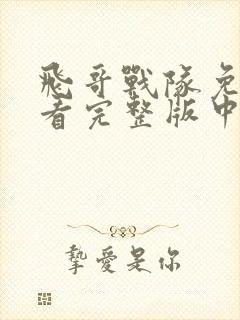 飛哥戰隊免
看完整版中
摯愛是你